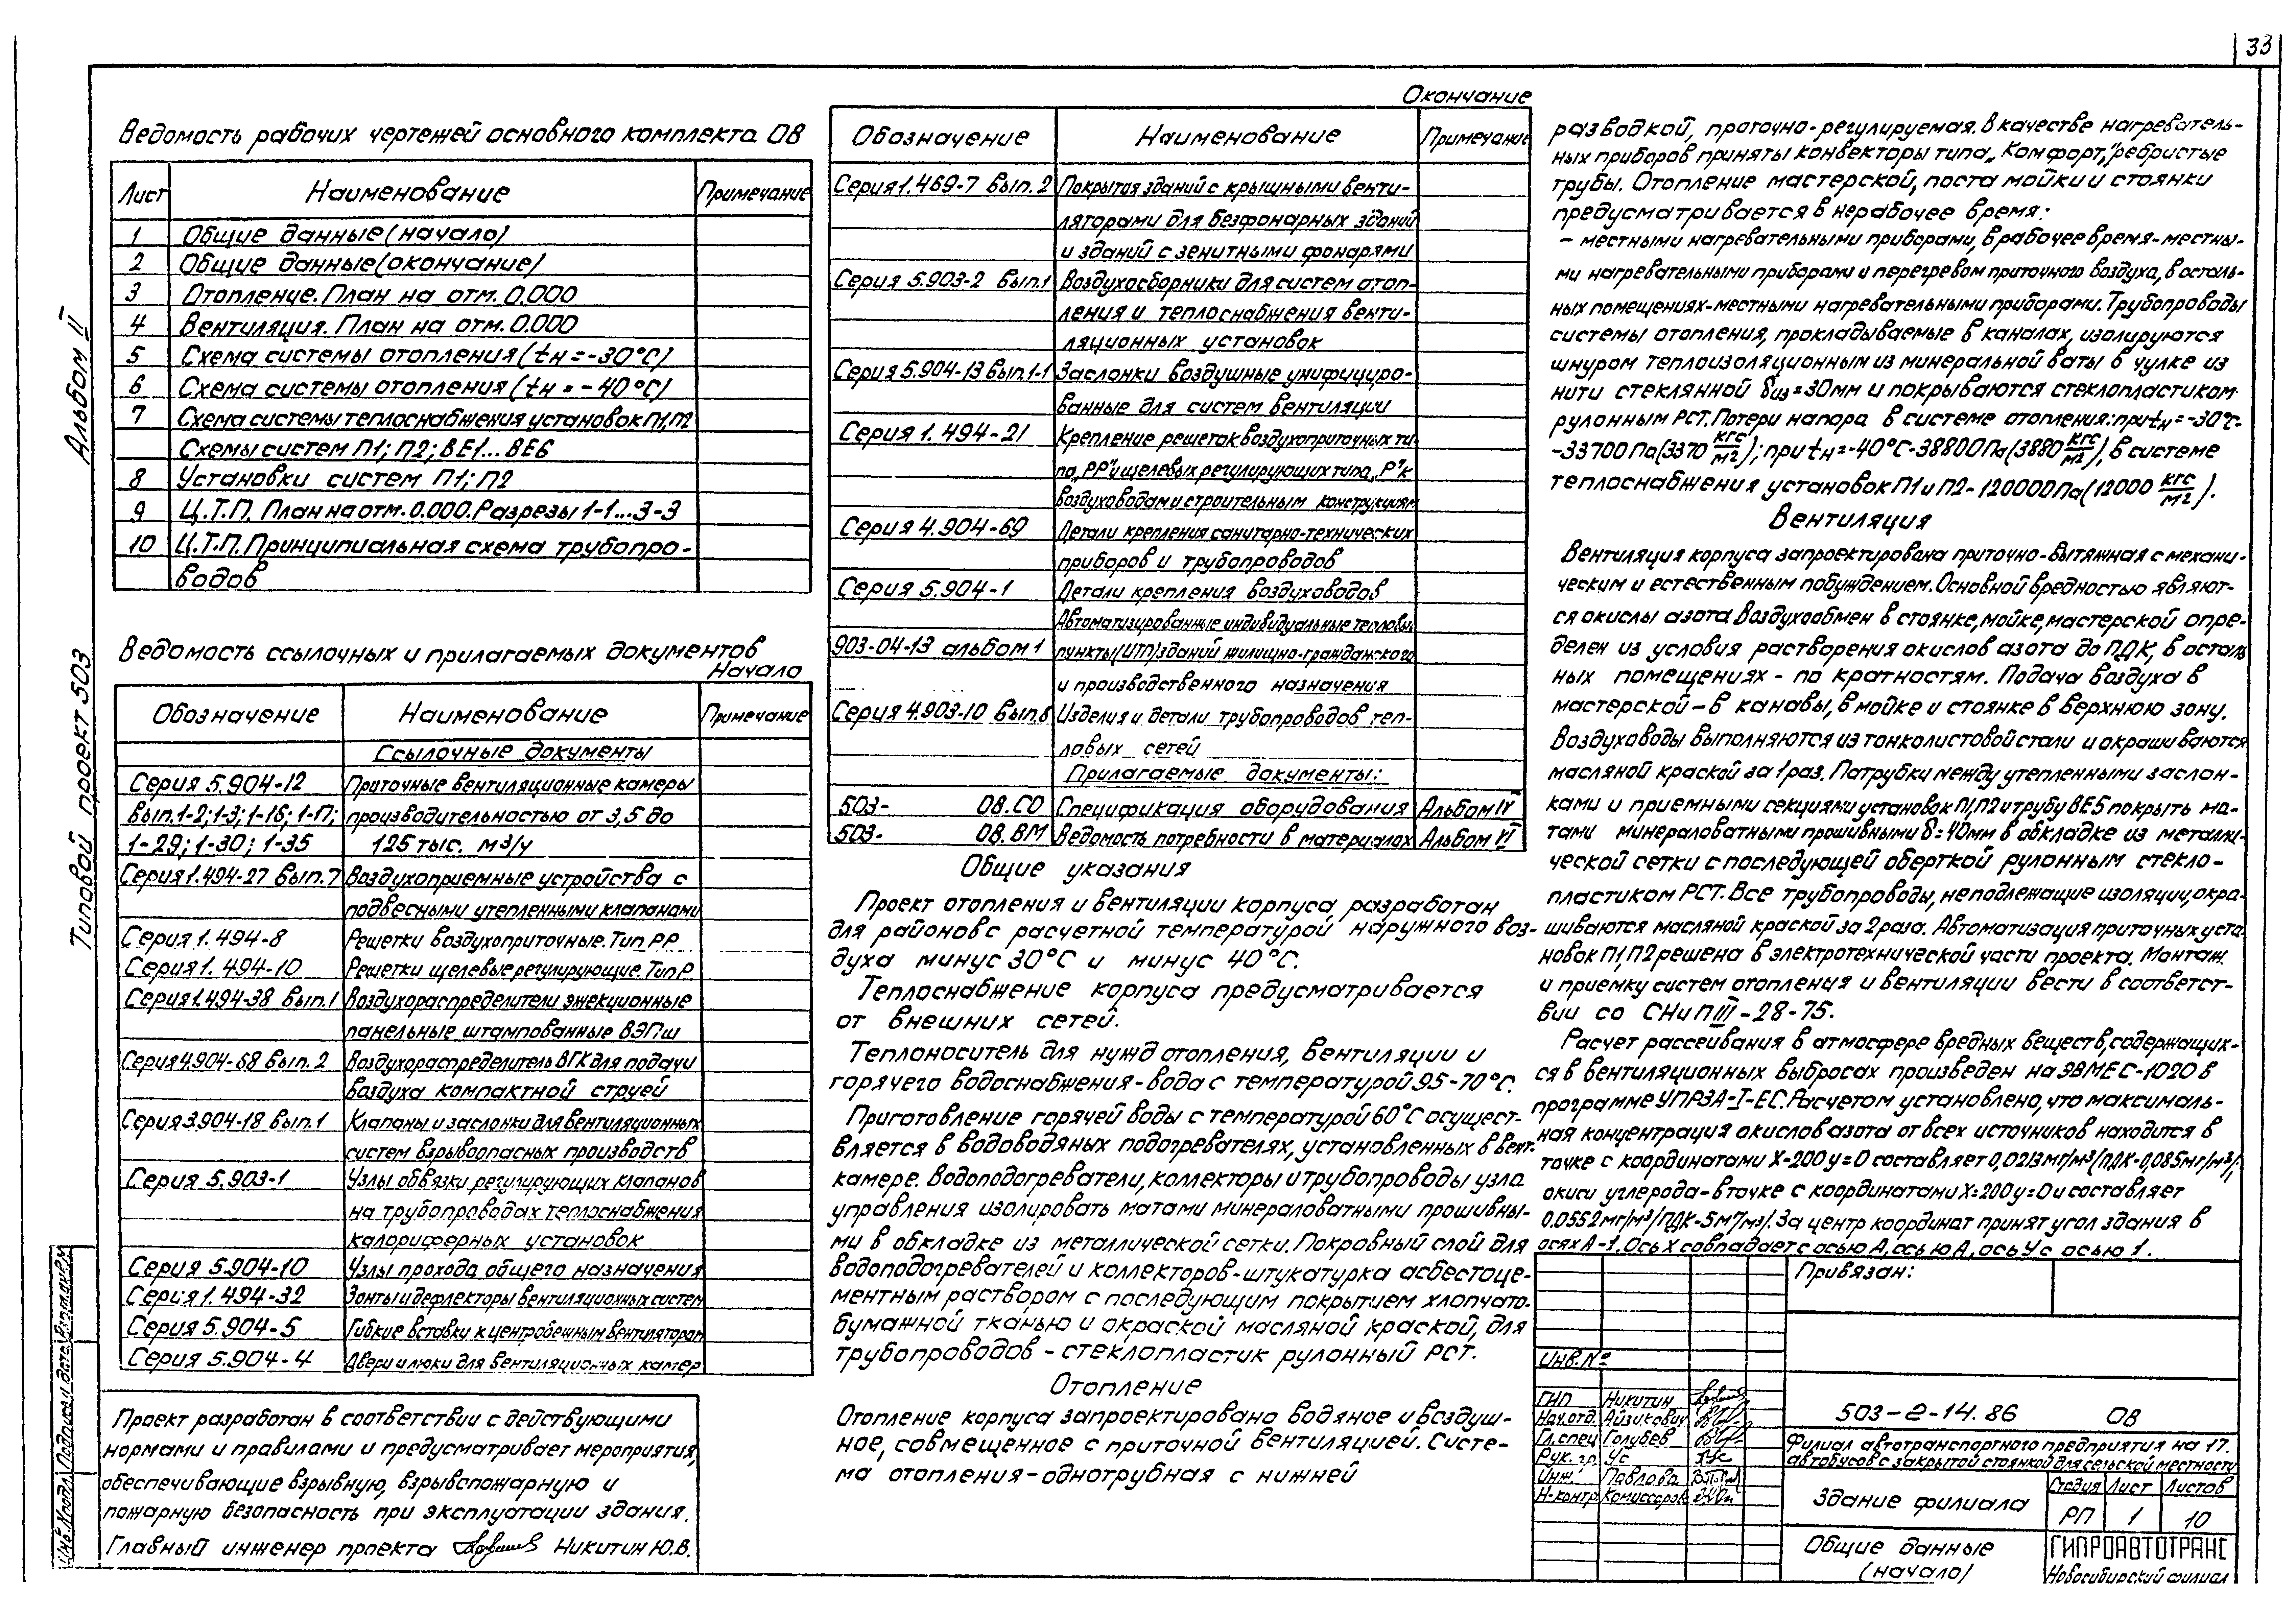 33
Альбом II
Типовой проект 503
Ведомость рабочих чертежей основного комплекта ОВ
Лист Наименование Примечание
1 Общие данные (начало)
2 Общие данные (окончание)
3 Отопление. План на отм. 0.000
4 Вентиляция. План на отм. 0.000
5 Схема системы отопления (tн=-30°С)
6 Схема системы отопления (tн = -40°С)
7 Схема системы теплоснабжения установок П1, П2
Схемы систем П1; П2; ВЕ1...ВЕ6
8 Установки систем П1; П2
9 Ц.Т.П. План на отм. 0.000. Разрезы 1-1...3-3
10 Ц.Т.П. Принципиальная схема трубопро-
водов
Ведомость ссылочных и прилагаемых документов
Начало
Обозначение Наименование Примечание
Ссылочные документы
Серия 5.904-12 Приточные вентиляционные камеры
Вып.1-2; 1-3; 1-16; 1-17; производительностью от 3,5 до
1-29; 1-30; 1-35 125 тыс. м3/ч
Серия 1.494-27 вып.7 Воздухоприемные устройства с
подвесными утепленными клапанами
Серия 1.494-8 Решетки воздухоприточные. Тип РР
Серия 1.494-10 Решетки щелевые регулирующие. Тип Р
Серия 1.494-38 вып.1 Воздухораспределители эжекционные
панельные штампованные ВЭПш
Серия 4.904-68 вып.2 Воздухораспределитель ВГК для подачи
воздуха компактной струей
Серия 3.904-18 вып.1 Клапаны и заслонки для вентиляционных
систем взрывоопасных производств
Серия 5.903-1 Узлы обвязки регулирующих клапанов
на трубопроводах теплоснабжения
калориферных установок
Серия 5.904-10 Узлы прохода общего назначения
Серия 1.494-32 Зонты и дефлекторы вентиляционных систем
Серия 5.904-5 Гибкие вставки к центробежным вентиляторам
Серия 5.904-4 Двери и люки для вентиляционных камер
Проект разработан в соответствии с действующими
нормами и правилами и предусматривает мероприятия,
обеспечивающие взрывную, взрывопожарную и
пожарную безопасность при эксплуатации здания.
Главный инженер проекта Никитин Ю.В.
Окончание
Обозначение Наименование Примечание
Серия 1.469-7 вып. 2 Покрытия зданий с крышными венти-
ляторами для безфонарных зданий
и зданий с зенитными фонарями
Серия 5.903-2 вып.1 Воздухосборники для систем отоп-
ления и теплоснабжения венти-
ляционных установок
Серия 5.904-13 вып.1-1 Заслонки воздушные унифициро-
ванные для систем вентиляции
Серия 1.494-21 Крепление решеток воздухоприточных ти-
па „РР" и щелевых регулирующих типа „Р" к
воздуховодам и строительным конструкциям
Серия 4.904-69 Детали крепления санитарно-технических
приборов и трубопроводов
Серия 5.904-1 Детали крепления воздуховодов
Автоматизированные индивидуальные тепловые
903-04-13 альбом 1 пункты (ИТП) зданий жилищно-гражданского
и производственного назначения
Серия 4.903-10 вып.8 Изделия и детали трубопроводов теп-
ловых сетей
Прилагаемые документы:
503- ОВ.СО Спецификация оборудования Альбом IV
503- ОВ.ВМ Ведомость потребности в материалах Альбом VI
Общие указания
Проект отопления и вентиляции корпуса разработан
для районов с расчетной температурой наружного воз-
духа минус 30°С и минус 40°С.
Теплоснабжение корпуса предусматривается
от внешних сетей.
Теплоноситель для нужд отопления, вентиляции и
горячего водоснабжения-вода с температурой 95-70°С.
Приготовление горячей воды с температурой 60°С осущест-
вляется в водоводяных подогревателях, установленных в вент-
камере. Водоподогреватели, коллекторы и трубопроводы узла
управления изолировать матами минераловатными прошивны-
ми в обкладке из металлической сетки. Покровный слой для
водоподогревателей и коллекторов-штукатурка асбестоце-
ментным раствором с последующим покрытием хлопчато-
бумажной тканью и окраской масляной краской, для
трубопроводов - стеклопластик рулонный РСТ.
Отопление
Отопление корпуса запроектировано водяное и воздуш-
ное, совмещенное с приточной вентиляцией. Систе-
ма отопления-однотрубная с нижней
разводкой, проточно-регулируемая. В качестве нагреватель-
ных приборов приняты конвекторы типа „Комфорт," ребристые
трубы. Отопление мастерской, поста мойки и стоянки
предусматривается в нерабочее время:
- местными нагревательными приборами, в рабочее время-местны-
ми нагревательными приборами и перегревом приточного воздуха, в осталь-
ных помещениях-местными нагревательными приборами. Трубопроводы
системы отопления, прокладываемые в каналах, изолируются
шнуром теплоизоляционным из минеральной ваты в чулке из
нити стеклянной δиз=30мм и покрываются стеклопластиком
рулонным РСТ. Потери напора в системе отопления: при tн=-30°С-
-33700 Па (3370 кгс/м2); при tн=-40°С-38800Па (3880 кгс/м2), в системе
теплоснабжения установок П1 и П2-120000Па (12000 кгс/м2).
Вентиляция
Вентиляция корпуса запроектирована приточно-вытяжная с механи-
ческим и естественным побуждением. Основной вредностью являют-
ся окислы азота. Воздухообмен в стоянке, мойке, мастерской опре-
делен из условия растворения окислов азота до ПДК, в осталь-
ных помещениях - по кратностям. Подача воздуха в
мастерской-в канавы, в мойке и стоянке в верхнюю зону.
Воздуховоды выполняются из тонколистовой стали и окрашиваются
масляной краской за 1 раз. Патрубки между утепленными заслон-
ками и приемными секциями установок П1,П2 и трубу ВЕ5 покрыть ма-
тами минераловатными прошивными δ=40мм в обкладке из металли-
ческой сетки с последующей оберткой рулонным стекло-
пластиком РСТ. Все трубопроводы, не подлежащие изоляции, окра-
шиваются масляной краской за 2 раза. Автоматизация приточных уста-
новок П1,П2 решена в электротехнической части проекта. Монтаж
и приемку систем отопления и вентиляции вести в соответст-
вии со СНиП III-28-75.
Расчет рассеивания в атмосфере вредных веществ, содержащих-
ся в вентиляционных выбросах произведен на ЭВМ ЕС-1020 в
программе УПРЗА-I-ЕС. Расчетом установлено, что максималь-
ная концентрация окислов азота от всех источников находится в
точке с координатами Х-200 у=0 составляет 0,0213мг/м3 (ПДК-0,085мг/м3);
окиси углерода-в точке с координатами Х=200 у=0 и составляет
0.0552мг/м3/ПДК-5мг/м3/. За центр координат принят угол здания в
осях А-1. Ось Х совпадает с осью А, ось ю А, ось У с осью 1.
Привязан:
Инв.№
ГИП Никитин
Нач.отд. Айзикович
Гл.спец Голубев
Рук. гр. Ус
Инж. Павлова
Н-контр Комиссаров
503-2-14.86 ОВ
Филиал автотранспортного предприятия на 17.
автобусов с закрытой стоянкой для сельской местности
Здание филиала
Стадия Лист Листов
РП 1 10
Общие данные
(начало)
ГИПРОАВТОТРАНС
Новосибирский филиал
Инв.№подл. Подпись и дата